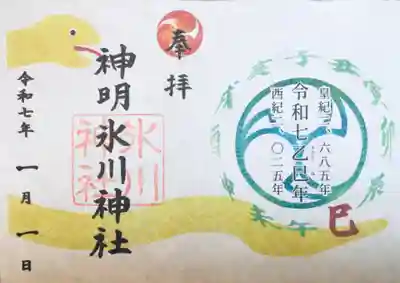 奉拝
神明氷川神社
氷川
神社
令和七年
一月一日
皇紀二、六八五年
令和七乙巳年
西紀二、〇二五年
子
丑
寅
卯
辰
巳
午
未
申
酉
戌
亥